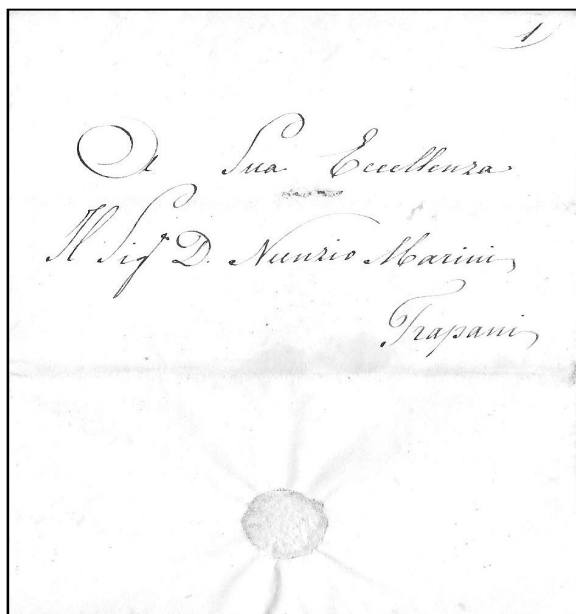 1
A Sua Eccellenza
Il Sigr D. Nunzio Marini
Trapani